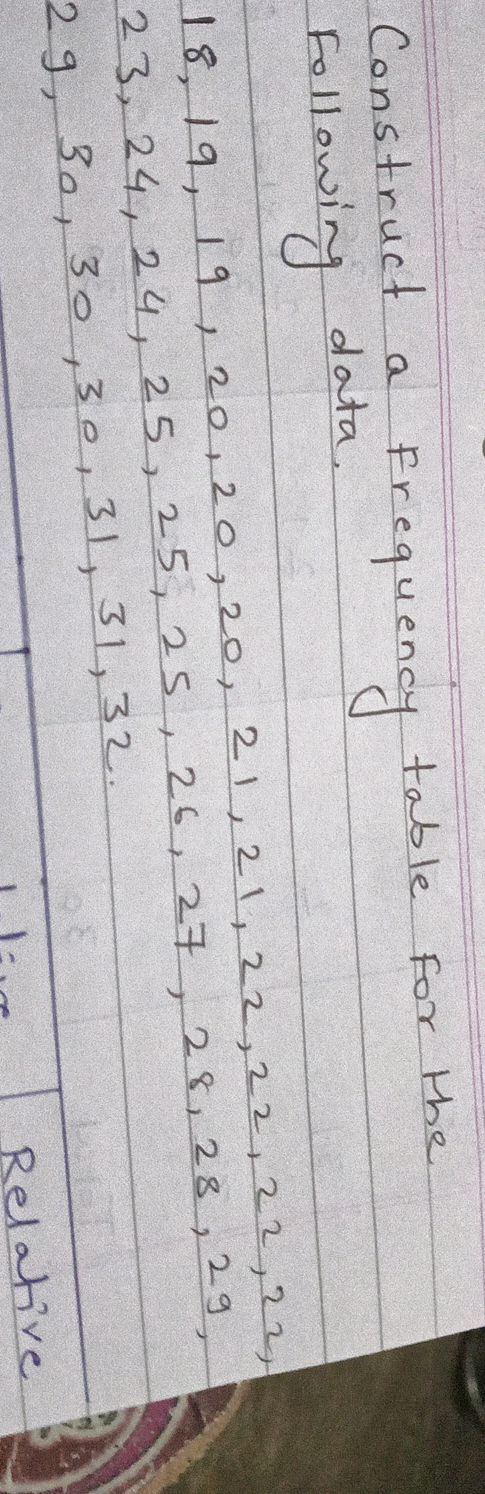 Construct a Frequency table for the
Following data.
18, 19, 19, 20, 20, 20, 21, 21, 22, 22, 22, 22,
23, 24, 24, 25, 25, 25, 26, 27, 28, 28, 29,
29, 30, 30, 30, 31, 31, 32.
Relative